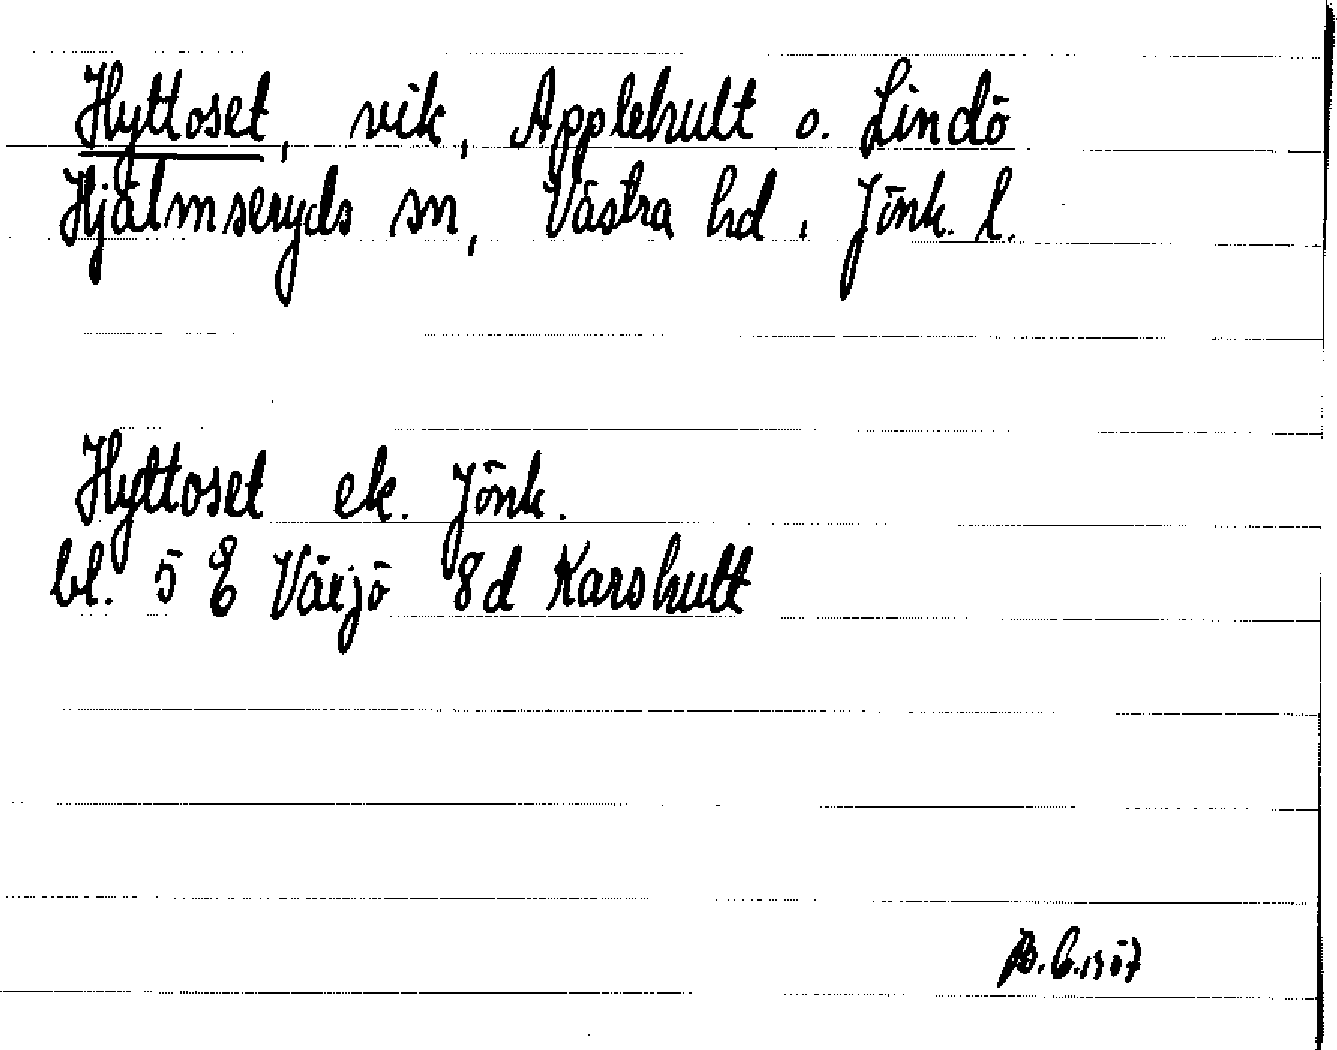 Hyttoset, vik, Applehult o. Lindö
Hjälmseryds sn, Västra hd, Jönk. l.
Hyttoset ek. Jönk.
bl. 5 E Växjö 8d Karshult